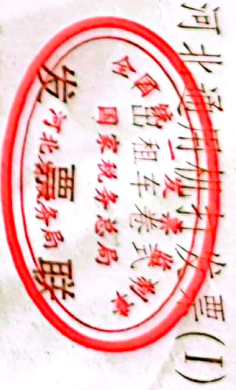 河北通用机打发票(I)
全国统一发票监制章
出租车卷式
国家税务总局
河北省税务局
发票联